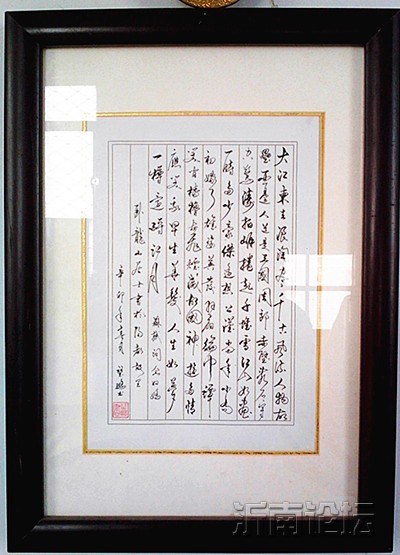 大江東去浪淘盡千古風流人物故
壘西邊人道是三國周郎赤壁亂石穿
空驚濤拍岸捲起千堆雪江山如畫
一時多少豪傑遥想公瑾當年小喬
初嫁了雄姿英發羽扇綸巾談
笑間檣櫓灰飛煙滅故國神遊多情
應笑我早生華髮人生如夢
一樽還酹江月
蘇軾詞念奴嬌
卧龍山居士書於陽都故里
辛卯年春月
沂南论坛